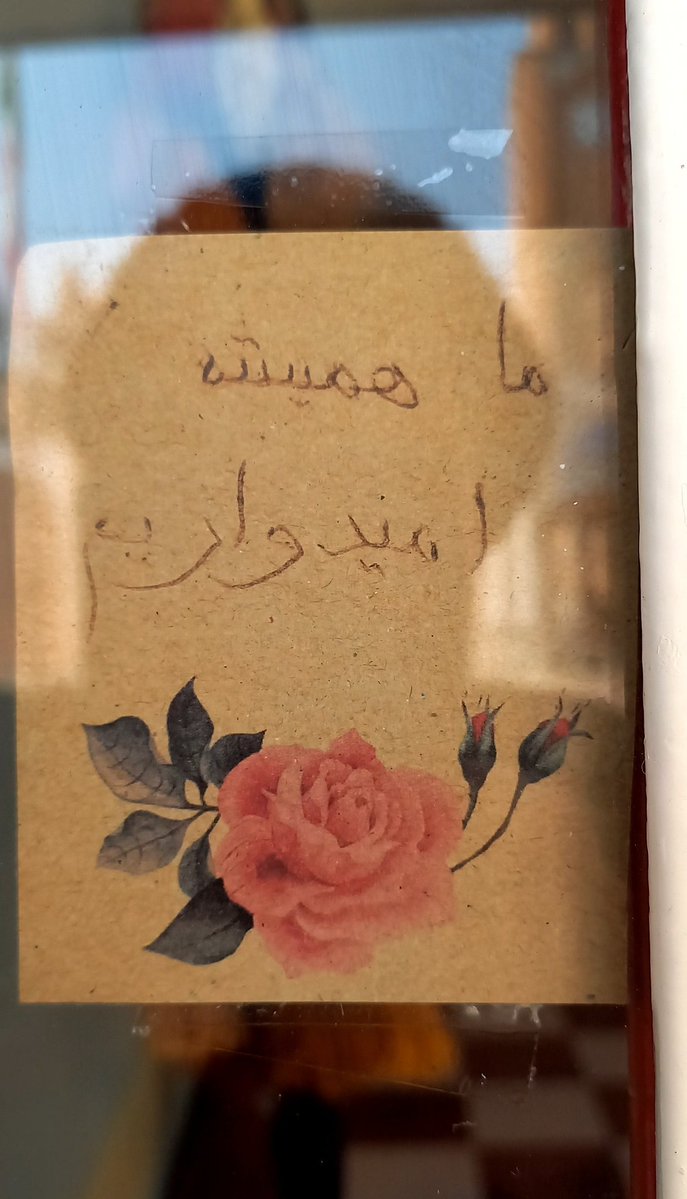 ما همیشه
امیدواریم